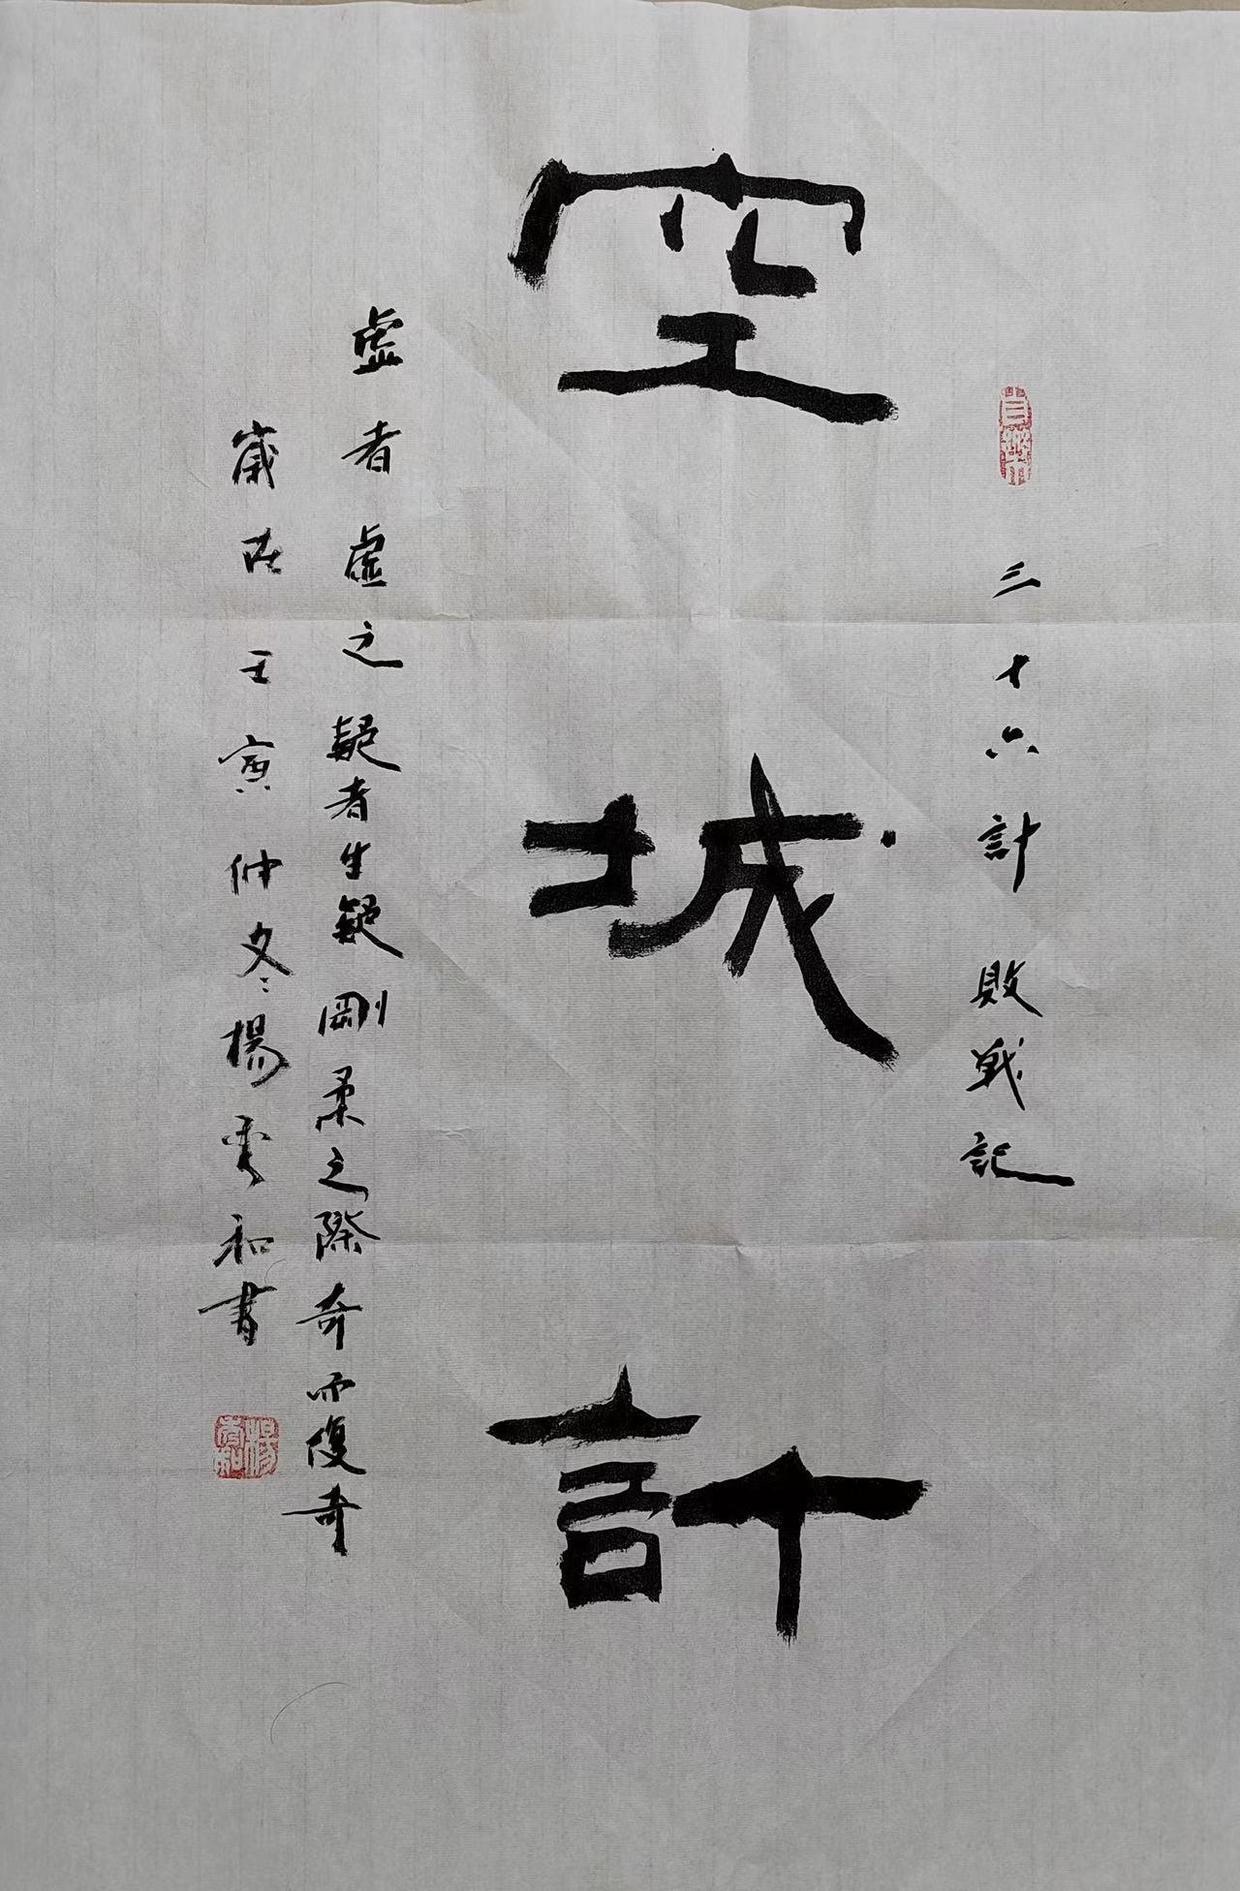 三十六計 敗戰記
空城計
虛者虛之疑者生疑剛柔之際奇而復奇
歲在壬寅仲冬楊和書